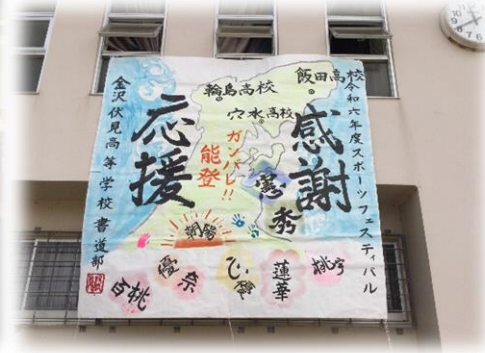 令和六年度スポーツフェスティバル
飯田高校
輪島高校
穴水高校
感謝
応援
ガンバレ!!
能登
金沢伏見高等学校書道部
秀
蓮華
優奈
百桃